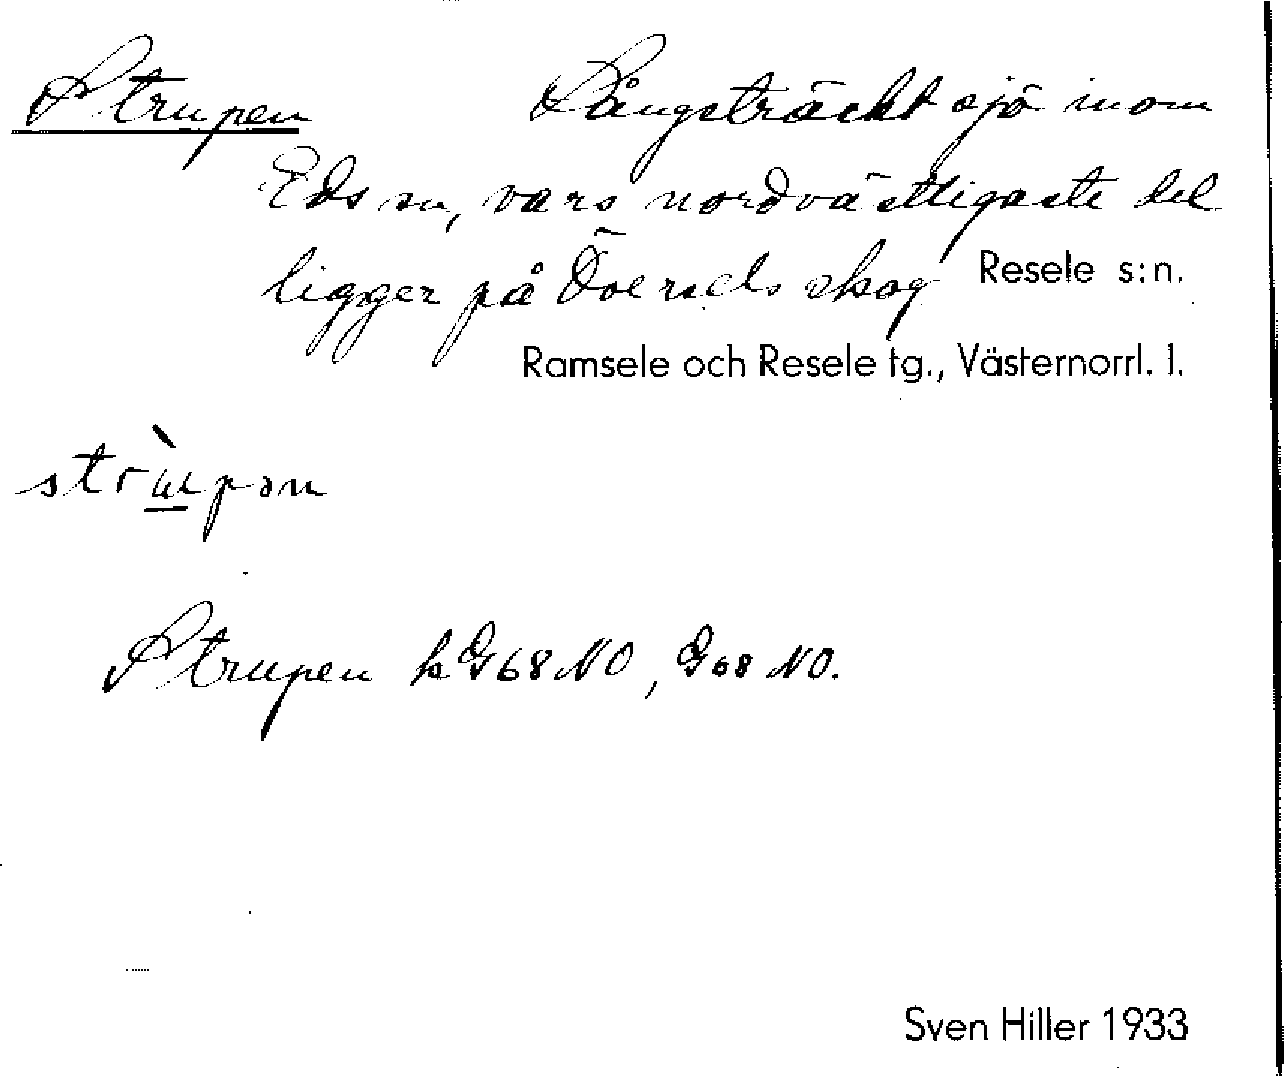 Strupen Långsträckt sjö inom
Eds sn, vars nordvästligaste del
ligger på skog Resele s:n.
Ramsele och Resele tg., Västernorrl. l.
strù̱pən
Strupen k G68 NO, G68 NO.
Sven Hiller 1933